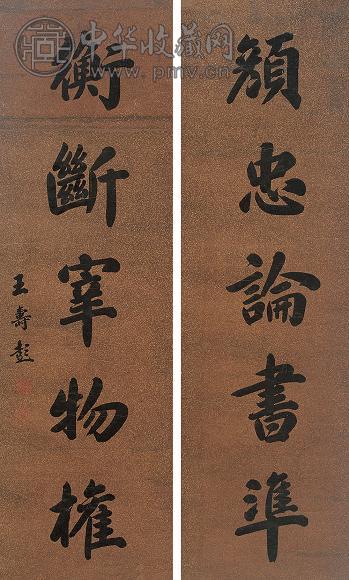 中华收藏网
www.pmv.cn
忠論書準
衡斷宰物權
王壽彭